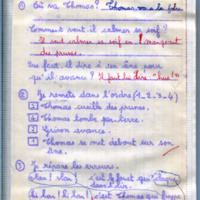 ① Où va Thomas? Thomas va a la
Comment veut il calmer sa soif?
Il veut calmer sa soif en mangeant
des prunes.
Que fait il dire à son âne pour
qu'il avance? Il faut lui dire
② Je remets dans l'ordre (1_2_3_4)
Thomas cueille des prunes.
Thomas tombe par terre.
Grison avance.
Thomas se met debout sur son
âne.
③ Je répare les erreurs.
c'est le foret que
Hi han! Hi han! c'est Thomas qui